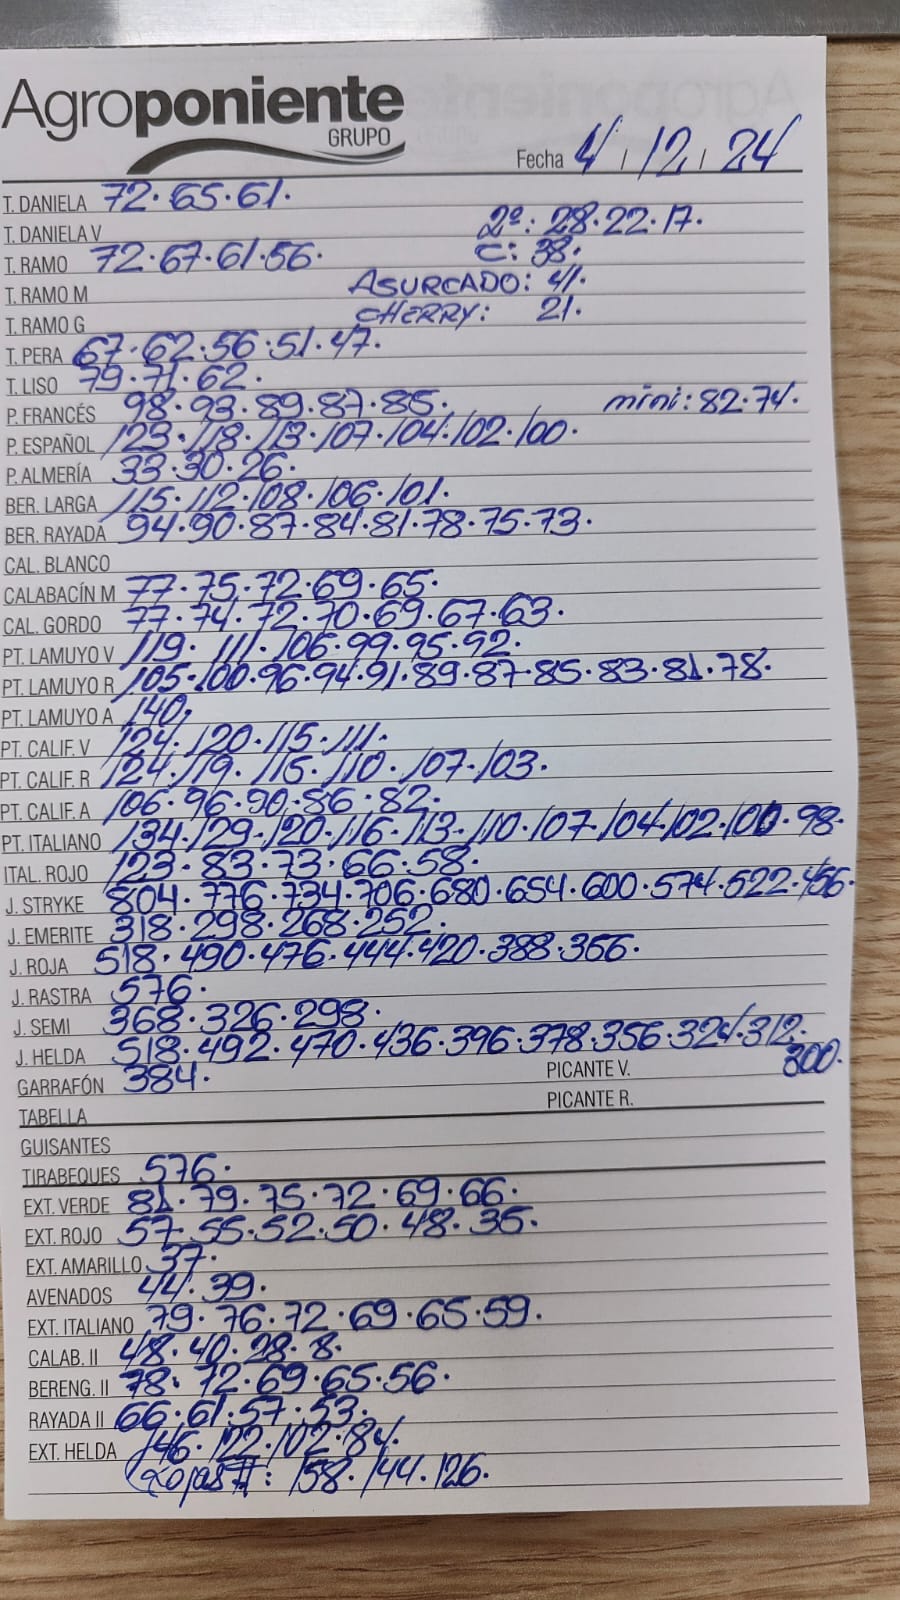 Agroponiente
GRUPO
Fecha 4/12/24
T. DANIELA 72.65.61.
T. DANELA V 2º: 28.22.17.
T. RAMO 72.67.61.56. C: 38.
T. RAMO M ASURCADO: 41.
T. RAMO G CHERRY: 21.
T. PERA 67.62.56.51.47.
T. LISO 79.71.62.
P. FRANCÉS 98.93.89.87.85. mini: 82.74.
P. ESPAÑOL 123.118.113.107.104.102.100.
P. ALMERÍA 33.30.26.
BER. LARGA 115.112.108.106.101.
BER. RAYADA 94.90.87.84.81.78.75.73.
CAL. BLANCO
CALABACÍN M 77.75.72.69.65.
CAL. GORDO 77.74.72.70.69.67.63.
PT. LAMUYO V 119.111.106.99.95.92.
PT. LAMUYO R 105.100.96.94.91.89.87.85.83.81.78.
PT. LAMUYO A 140.
PT. CALIF. V 124.120.115.111.
PT. CALIF. R 124.119.115.110.107.103.
PT. CALIF. A 106.96.90.86.82.
PT. ITALIANO 134.129.120.116.113.110.107.104.102.100.98.
ITAL. ROJO 123.83.73.66.58.
J. STRYKE 804.776.734.706.680.654.600.574.522.456.
J. EMERITE 318.298.268.252.
J. ROJA 518.490.476.444.420.388.366.
J. RASTRA 576.
J. SEMI 368.326.298.
J. HELDA 518.492.470.436.396.378.356.324.312.
300.
GARRAFÓN 384. PICANTE V.
TABELLA PICANTE R.
GUISANTES
TIRABEQUES 576.
EXT. VERDE 81.79.75.72.69.66.
EXT. ROJO 57.55.52.50.48.35.
EXT. AMARILLO 37.
AVENADOS 44.39.
EXT. ITALIANO 79.76.72.69.65.59.
CALAB. II 48.40.28.8.
BERENG. II 78.72.69.65.56.
RAYADA II 66.61.57.53.
EXT. HELDA 146.122.102.84.
Rojas II: 158.144.126.